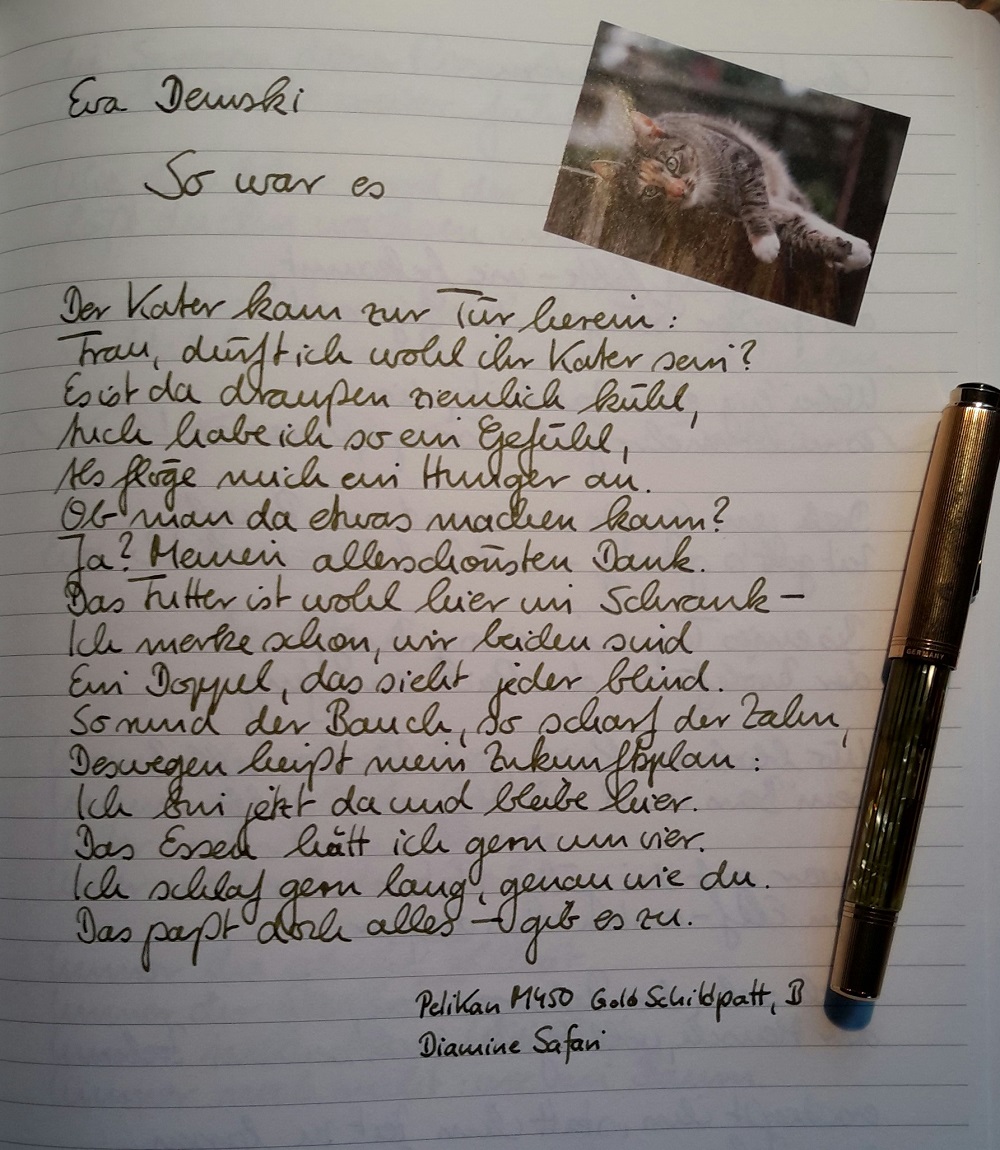 Eva Demski
So war es
Der Kater kam zur Tür herein:
Frau, dürft ich wohl ihr Kater sein?
Es ist da draußen ziemlich kühl,
Auch habe ich so ein Gefühl,
Als flöge mich ein Hunger an.
Ob man da etwas machen kann?
Ja? Meinen allerschönsten Dank.
Das Futter ist wohl hier im Schrank –
Ich merke schon, wir beiden sind
Ein Doppel, das sieht jeder blind.
So rund der Bauch, so scharf der Zahn,
Deswegen heißt mein Zukunftsplan:
Ich bin jetzt da und bleibe hier.
Das Essen hätt ich gern um vier.
Ich schlaf gern lang, genau wie du.
Das paßt doch alles – gib es zu.
Pelikan M450 Gold Schildpatt, B
Diamine Safari
GERMANY